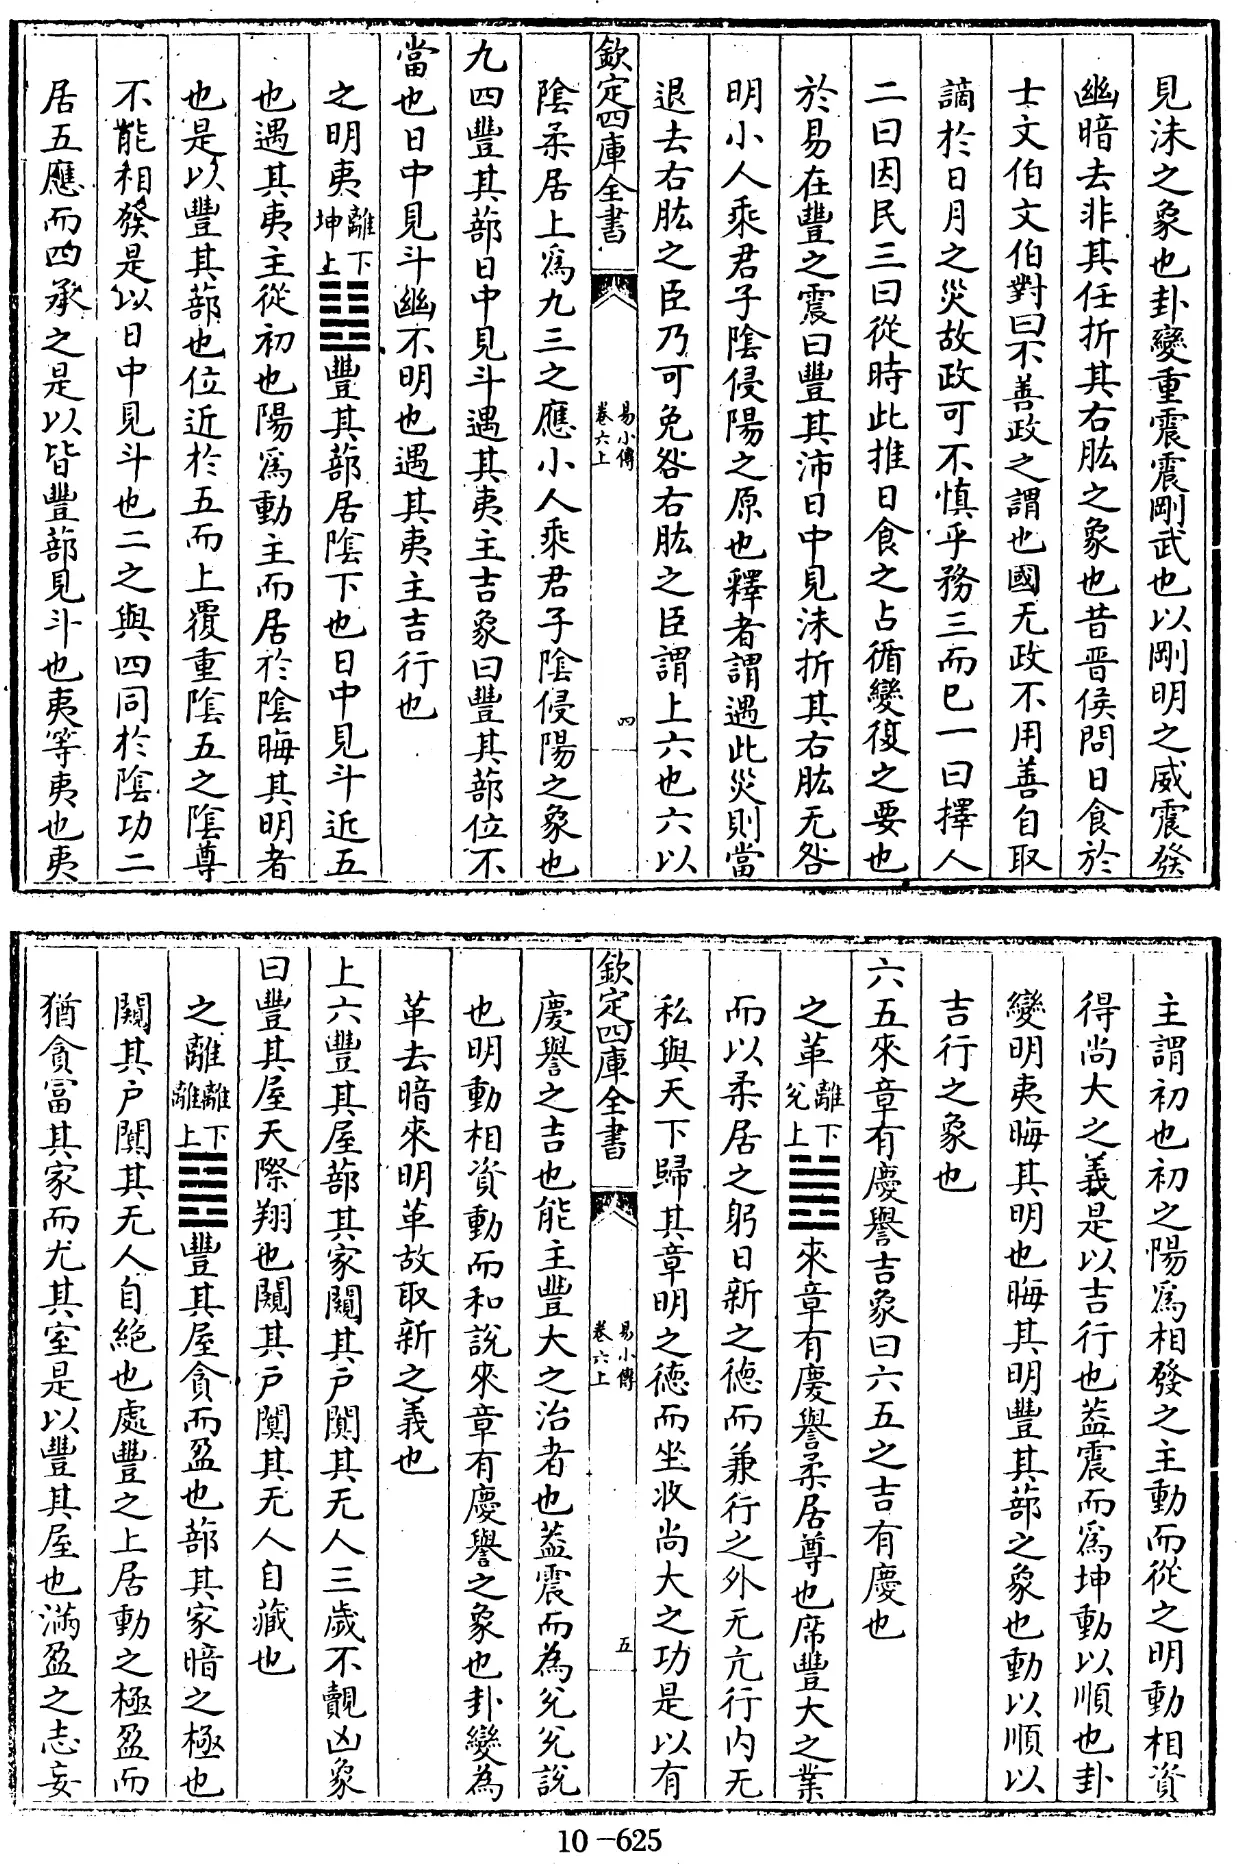 見沬之象也卦變重震震剛武也以剛明之威震發
幽暗去非其任折其右肱之象也昔晉侯問日食於
士文伯文伯對曰不善政之謂也國无政不用善自取
謫於日月之災故政可不慎乎務三而已一曰擇人
二曰因民三曰從時此推日食之占循變復之要也
於易在豐之震曰豐其沛日中見沬折其右肱无咎
明小人乘君子陰侵陽之原也釋者謂遇此災則當
退去右肱之臣乃可免咎右肱之臣謂上六也六以
欽定四庫全書
易小傳
卷六上
四
陰柔居上爲九三之應小人乘君子陰侵陽之象也
九四豐其蔀日中見斗遇其夷主吉象曰豐其蔀位不
當也日中見斗幽不明也遇其夷主吉行也
之明夷離下坤上䷣豐其蔀居陰下也日中見斗近五
也遇其夷主從初也陽爲動主而居於陰晦其明者
也是以豐其蔀也位近於五而上覆重陰五之陰尊
不能相發是以日中見斗也二之與四同於陰功二
居五應而四承之是以皆豐蔀見斗也夷等夷也夷
主謂初也初之陽爲相發之主動而從之明動相資
得尚大之義是以吉行也葢震而爲坤動以順也卦
變明夷晦其明也晦其明豐其蔀之象也動以順以
吉行之象也
六五來章有慶譽吉象曰六五之吉有慶也
之革離下兌上䷰來章有慶譽柔居尊也席豐大之業
而以柔居之躬日新之德而兼行之外无亢行内无
私與天下歸其章明之徳而坐收尚大之功是以有
欽定四庫全書
易小傳
卷六上
五
慶譽之吉也能主豐大之治者也葢震而為兌兌說
也明動相資動而和說來章有慶譽之象也卦變為
革去暗來明革故取新之義也
上六豐其屋蔀其家闚其戸闃其无人三歲不覿凶象
曰豐其屋天際翔也闚其戸闃其无人自藏也
之離離下離上䷝豐其屋貪而盈也蔀其家暗之極也
闚其戸闃其无人自絶也處豐之上居動之極盈而
猶貪富其家而尤其室是以豐其屋也滿盈之志妄
10-625